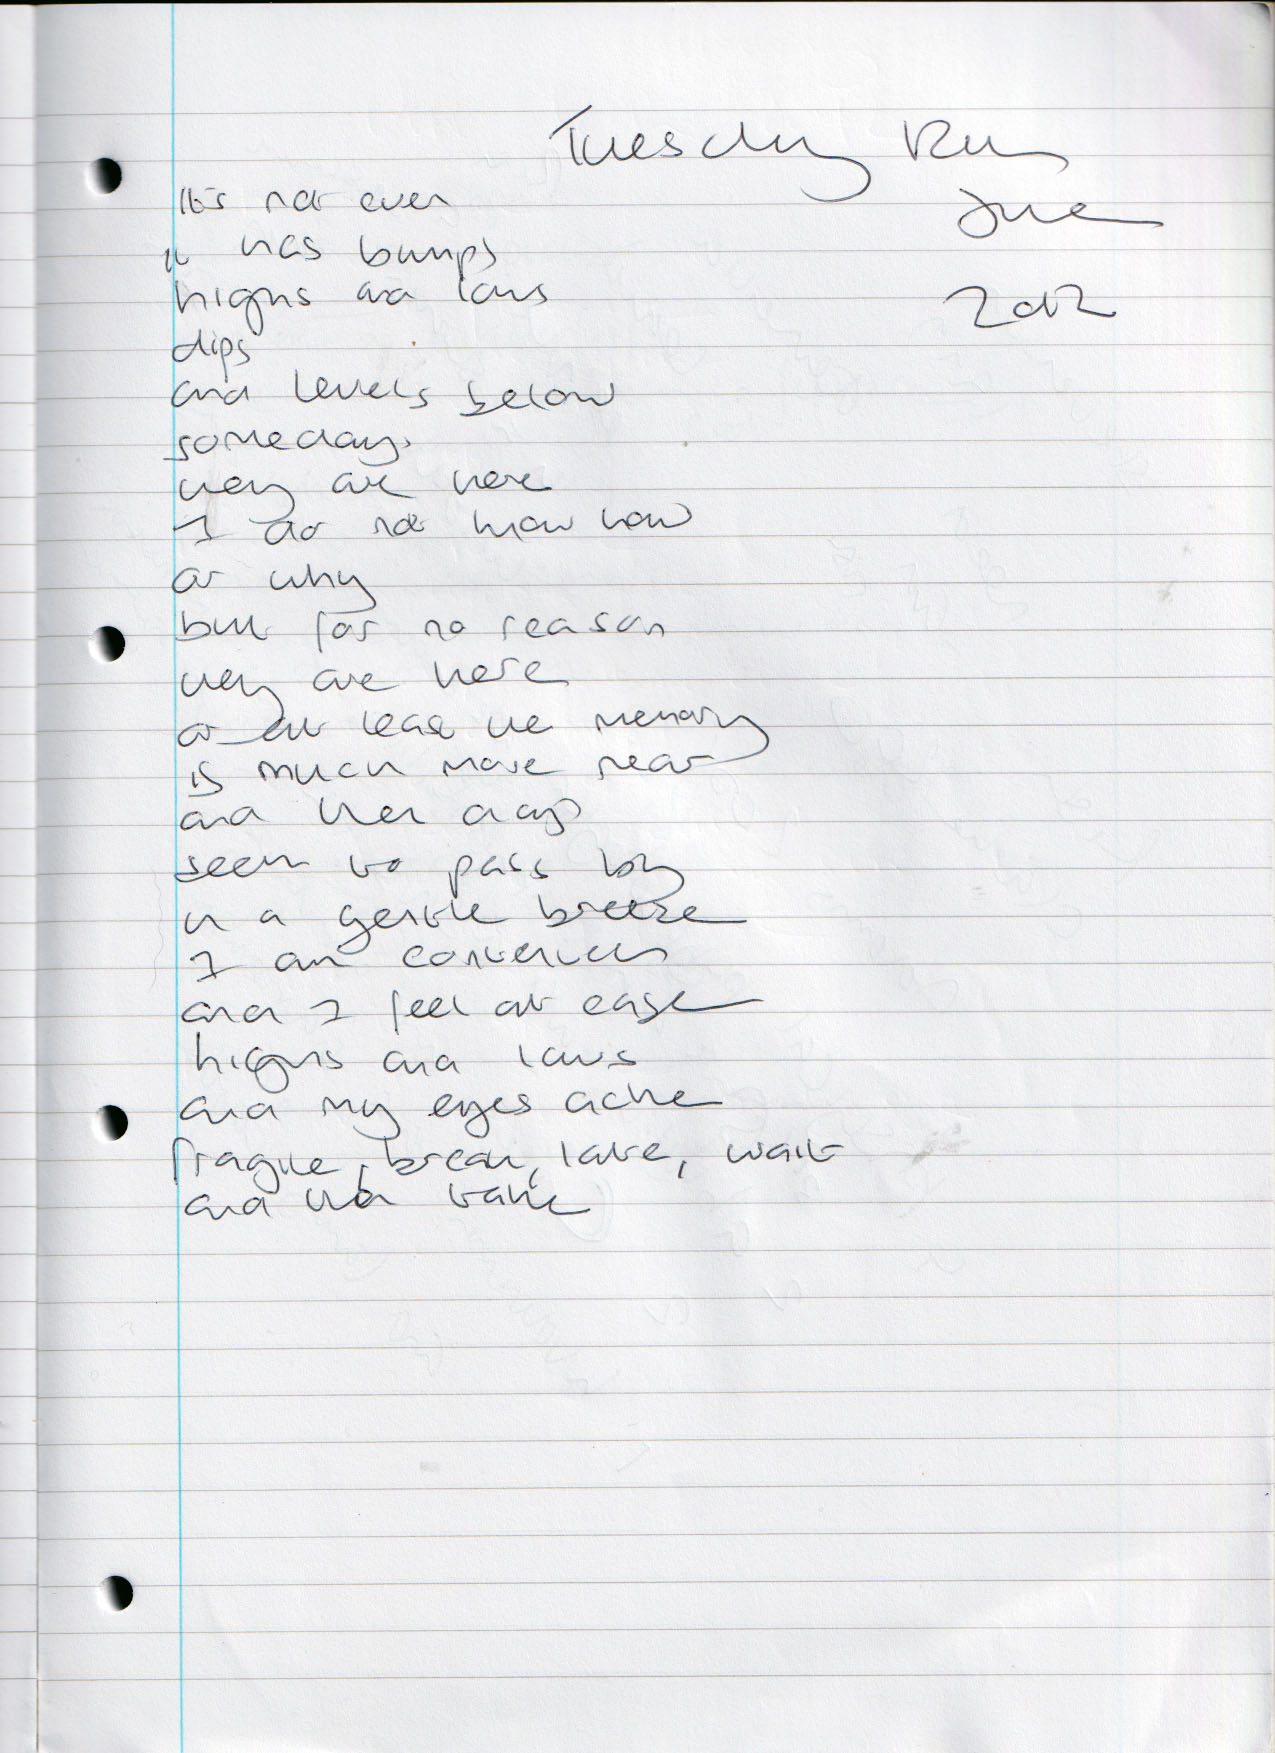 Tuesday
June
2012
It's not even
it has bumps
highs and lows
dips
and levels below
somedays
they are here
I do not know how
or why
but for no reason
they are here
or at least the memory
is much more near
and then days
seem to pass by
in a gentle breeze
I am content
and I feel at ease
highs and lows
and my eyes ache
fragile, break, late, wait
and then take